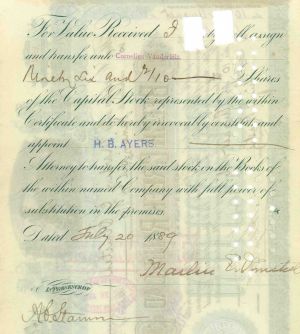 For Value Received I hereby sell, assign
and transfer unto Cornelius Vanderbilt
Ninety Six and 6/10 Shares
of the Capital Stock represented by the within
Certificate and do hereby irrevocably constitute and
appoint H. B. AYERS.
Attorney to transfer the said stock on the Books of
the within named Company with full power of
substitution in the premises.
Dated July 20 1889
IN PRESENCE OF